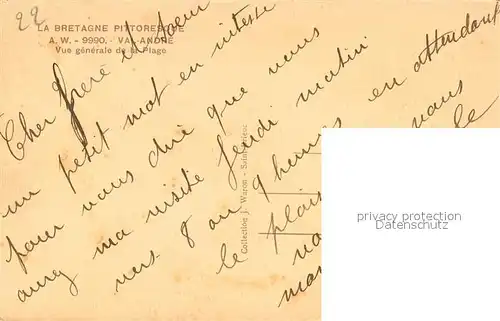 22
LA BRETAGNE PITTORESQUE
A. W. - 9990. - VAL-ANDRÉ
Vue générale de la Plage
Cher frère et soeur
un petit mot en vitesse
pour vous dire que vous
aurez ma visite jeudi matin
vers 8 ou 9 heures en attendant
le plais
vous
le
Collection J. Waron - Saint-Brieuc
privacy protection
Datenschutz